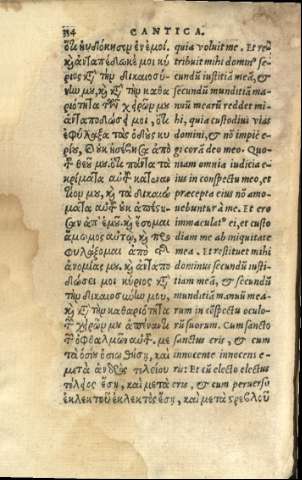 334 CANTICA.
ὅτι ηὐδόκησεν ἐν ἐμοί.
κ̀ ἀνταπέδωκέ μοι κύ
ριος κτ τὴν δικαιοσύ-
νην μου, κ̀ κτ τὴν καθα
ριότητα τῶν χειρῶν μου
ἀνταποδώσει μοι, ὅτι
ἐφύλαξα τὰς ὁδοὺς κυ
ρίου,
θεοῦ μου. ὅτι πάντα τὰ
κρίματα αὐτοῦ κατενώ
πιόν μου, κ̀ τὰ δικαιώ
ματα αὐτοῦ οὐκ ἀπέστη
σαν ἀπ' ἐμοῦ. κ̀ ἔσομαι
ἄμωμος αὐτῷ, κ̀
φυλάξομαι ἀπὸ τ
ἀνομίας μου. κ̀ ἀνταπο
δώσει μοι κύριος κτ
τὴν δικαιοσύνην μου,
κ̀ κτ τὴν καθαριότητα
τ χειρῶν μου ἀπέναντι
τ ὀφθαλμῶν αὐτοῦ. με
τὰ ὁσίου ὁσιωθήσῃ, καὶ
μετὰ ἀνδρὸς τελείου
τέλειος ἔσῃ, καὶ μετὰ
ἐκλεκτοῦ ἐκλεκτὸς ἔσῃ, καὶ μετὰ στρεβλοῦ
quia voluit me. Et re
tribuit mihi dominꝰ se-
cundū iustitiā meā, &
secundū munditiā ma-
nuū mearū reddet mi-
hi, quia custodivi vias
domini, & nō impiè e-
gi corā deo meo. Quo-
niam omnia iudicia e-
ius in conspectu meo, et
præcepta eius nō amo-
vebuntur à me. Et ero
immaculatꝰ ei, et custo
diam me ab iniquitate
mea. Et restituet mihi
dominus secundū iusti-
tiam meā, & secundū
munditiā manuū mea-
rum in cōspectu oculo-
rū suorum. Cum sancto
sanctus eris, & cum
innocente innocens e-
ris: Et cū electo electus
eris, & cum perverso